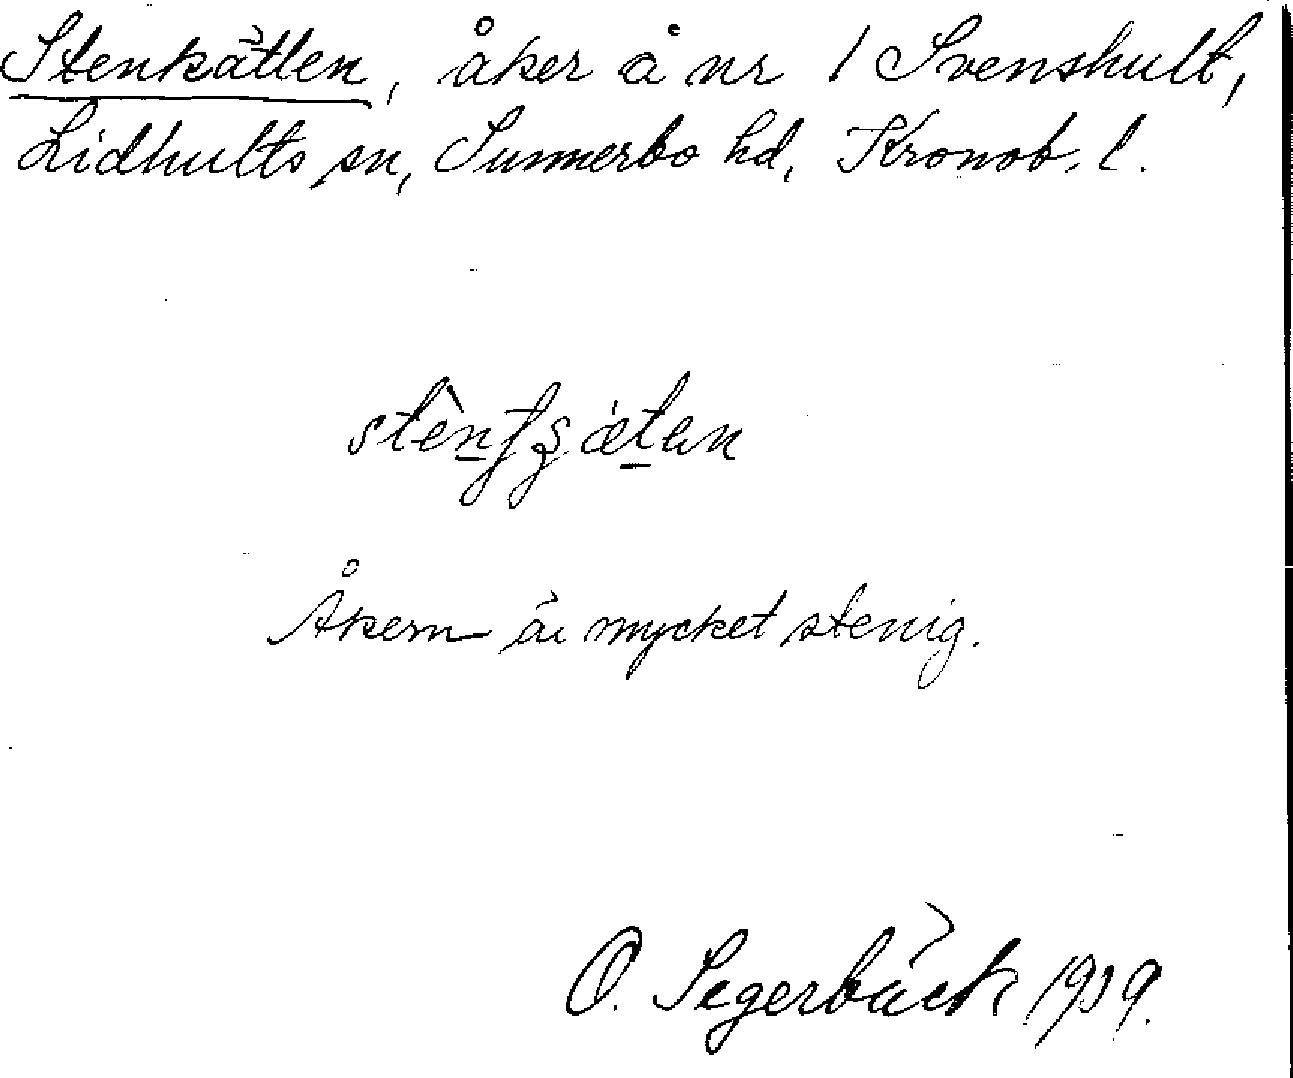 Stenkätten, åker å nr 1 Svenshult,
Lidhults sn, Sunnerbo hd, Kronob. l.
Åkern är mycket stenig.
O. Segerbäck 1939.